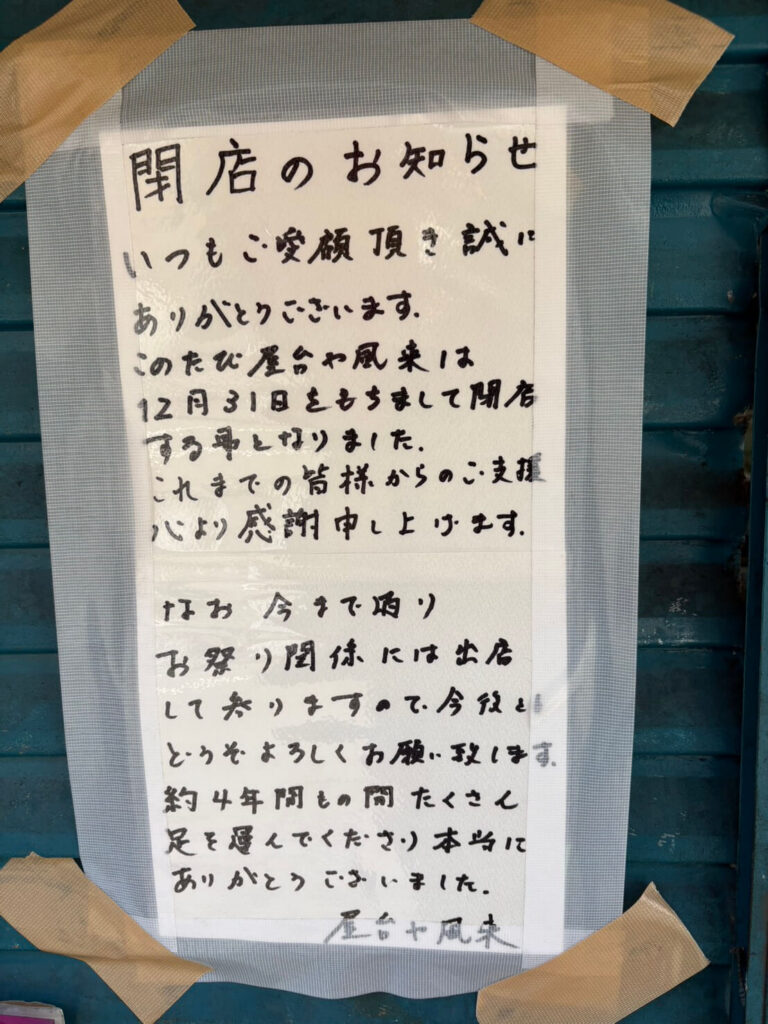 閉店のお知らせ
いつもご愛顧頂き誠に
ありがとうございます.
このたび屋台や風来は
12月31日をもちまして閉店
する事となりました.
これまでの皆様からのご支援
心より感謝申し上げます.
なお 今まで通り
お祭り関係には出店
して参りますので今後とも
どうぞよろしくお願い致します.
約4年間もの間 たくさん
足を運んでくださり本当に
ありがとうございました.
屋台や風来